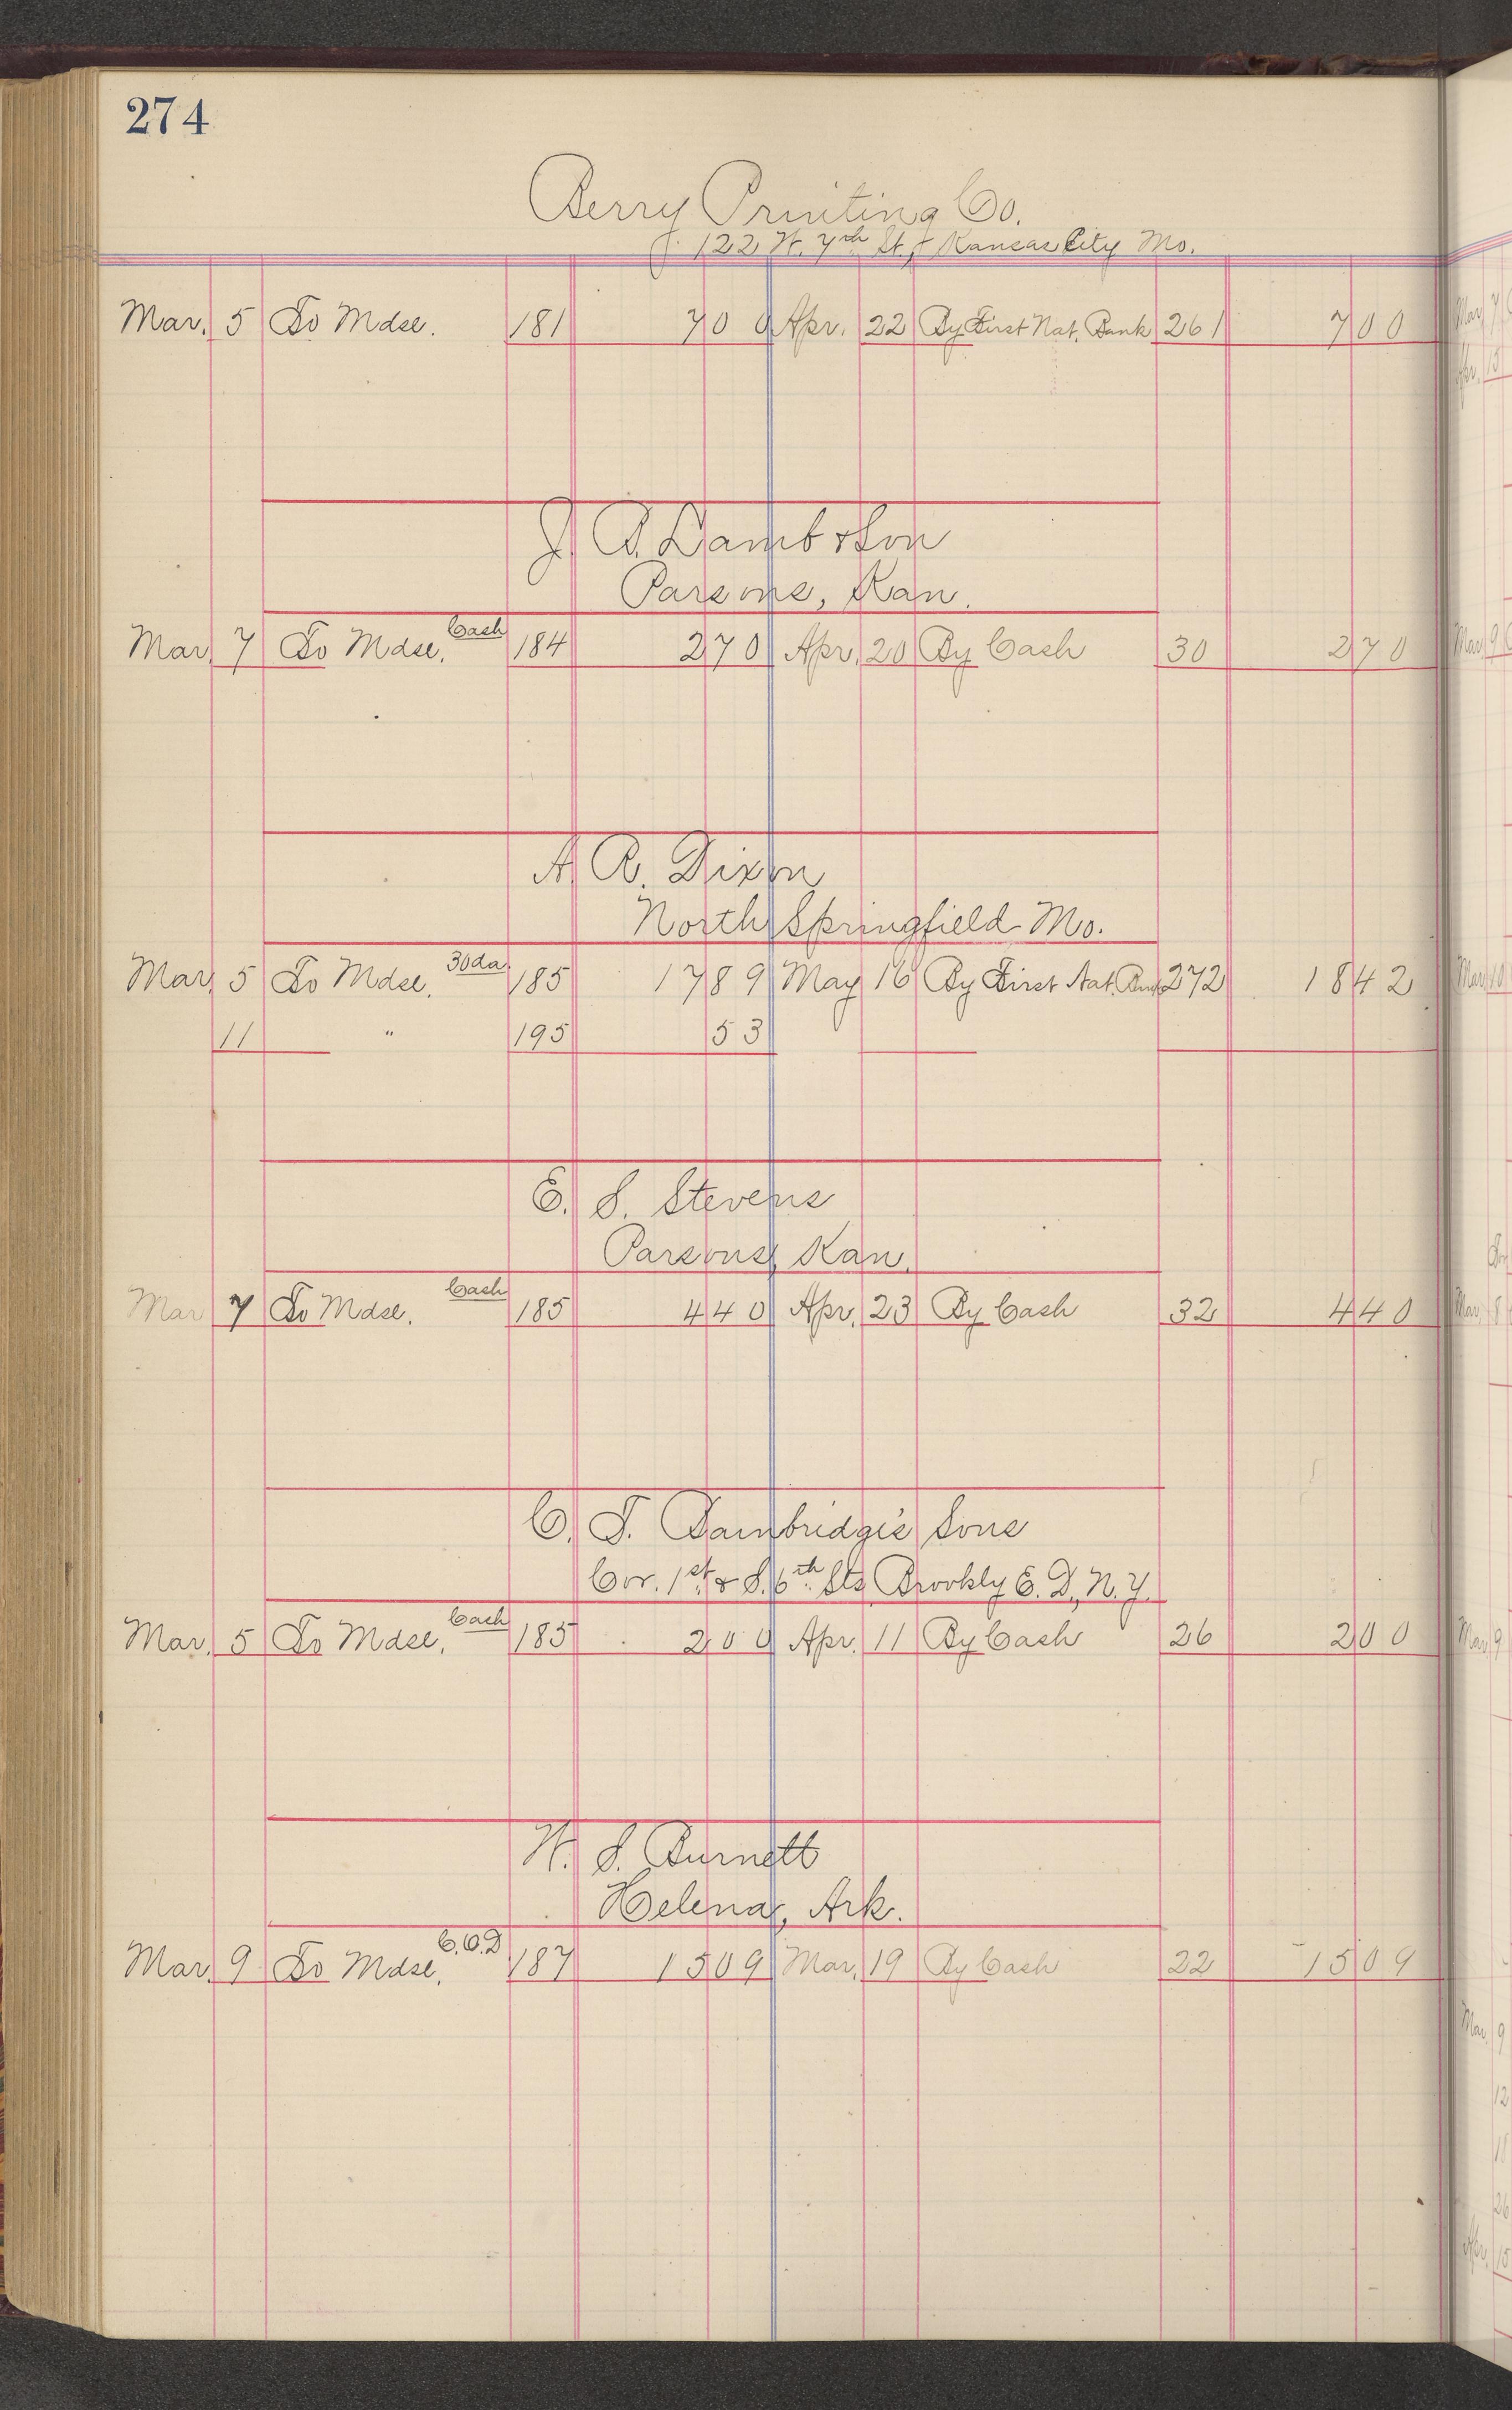 274
Berry Printing Co.
122 W. 7th St., Kansas City Mo.
Mar. 5 To Mdse. 181 7 00 Apr. 22 By First Nat. Bank 261 7 00
J. P. Lamb & Son
Parsons, Kan.
Mar. 7 To Mdse. Cash 184 2 70 Apr. 20 By Cash 30 2 70
A. R. Dixon
North Springfield Mo.
Mar. 5 To Mdse. 30 da. 185 17 89 May 16 By First Nat. Bnk 272 18 42
11 " 195 53
E. S. Stevens
Parsons, Kan.
Mar 7 To Mdse. Cash 185 4 40 Apr. 23 By Cash 32 4 40
C. T. Bainbridge's Sons
Cor. 1st & S. 6th Sts Brookly E. D., N. Y.
Mar. 5 To Mdse. Cash 185 2 00 Apr. 11 By Cash 26 2 00
W. S. Burnett
Helena, Ark.
Mar. 9 To Mdse. C.O.D 187 15 09 Mar. 19 By Cash 22 15 09